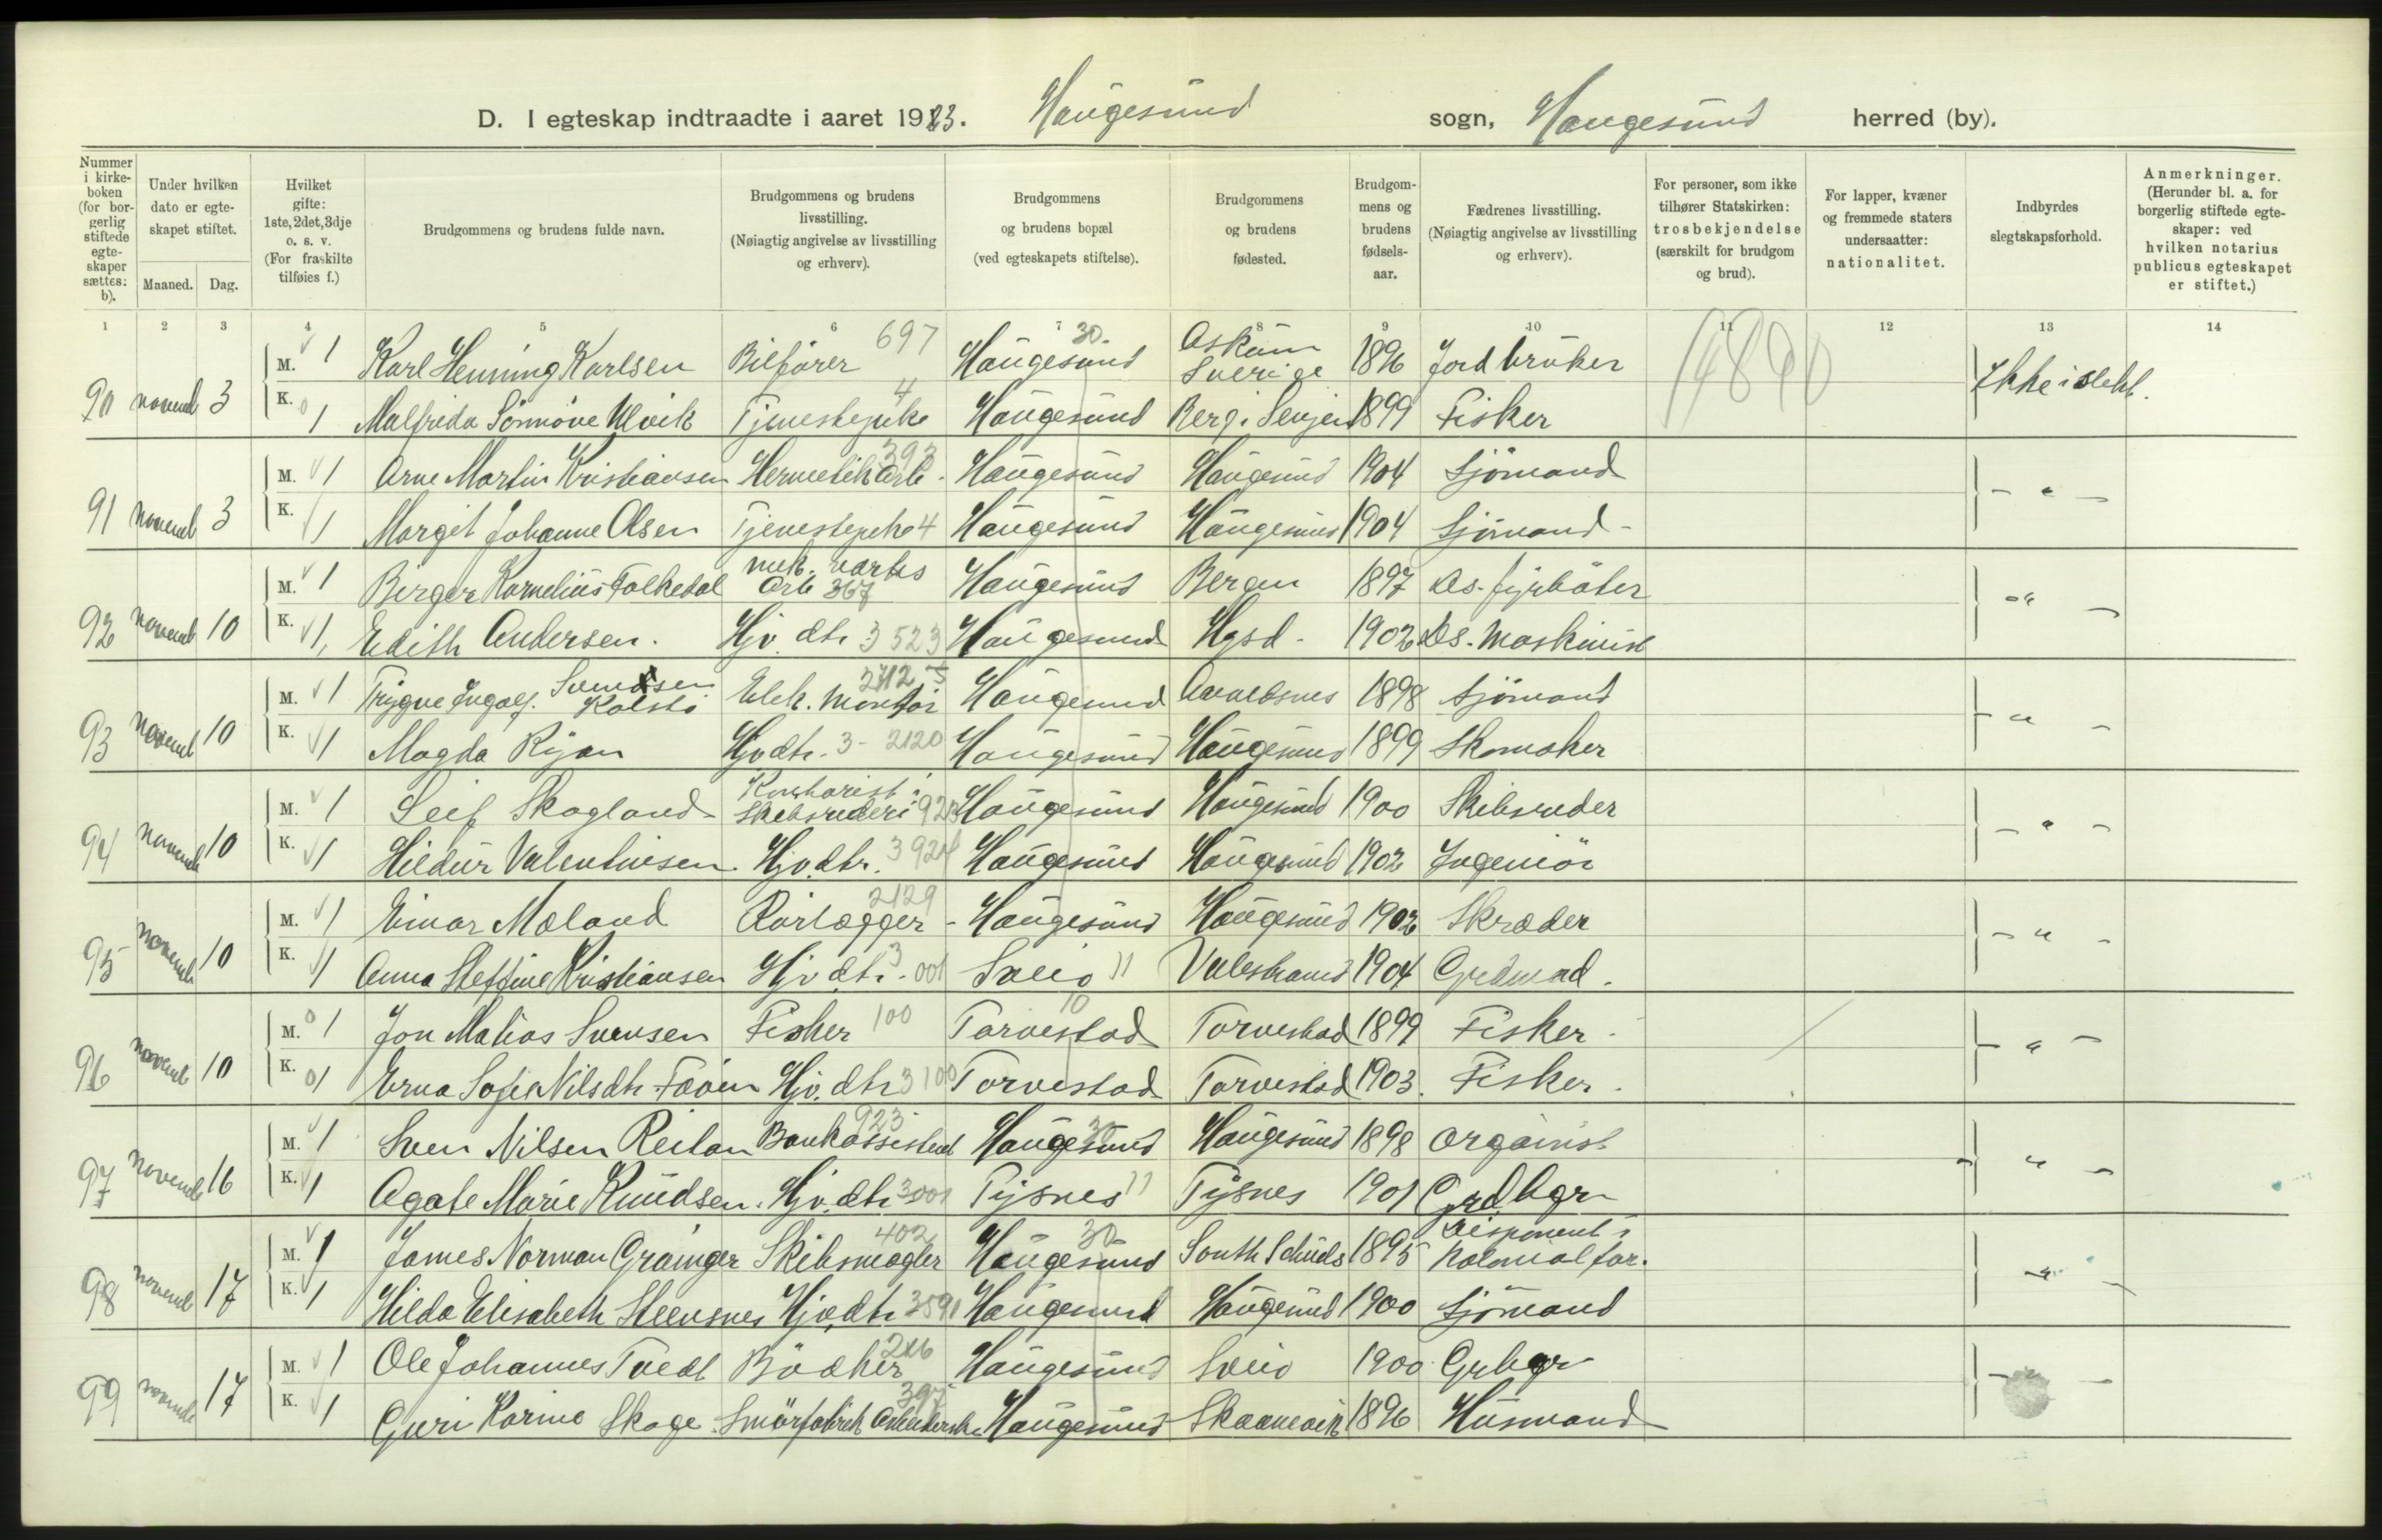 D. I egteskap indtraadte i aaret 1923. Haugesund sogn, Haugesund herred (by).
Nummer i kirke-boken (for bor-gerlig stiftede egte-skaper sættes: b).
Under hvilken dato er egte-skapet stiftet.
Maaned. Dag.
Hvilket gifte: 1ste, 2det, 3dje o. s. v. (For fraskilte tilføies f.)
Brudgommens og brudens fulde navn.
Brudgommens og brudens livsstilling. (Nøiagtig angivelse av livsstilling og erhverv).
Brudgommens og brudens bopæl (ved egteskapets stiftelse).
Brudgommens og brudens fødested.
Brudgom-mens og brudens fødsels-aar.
Fædrenes livsstilling. (Nøiagtig angivelse av livsstilling og erhverv).
For personer, som ikke tilhører Statskirken: trosbekjendelse (særskilt for brudgom og brud).
For lapper, kvæner og fremmede staters undersaatter: nationalitet.
Indbyrdes slegtskapsforhold.
Anmerkninger. (Herunder bl. a. for borgerlig stiftede egte-skaper: ved hvilken notarius publicus egteskapet er stiftet.)
1 2 3 4 5 6 7 8 9 10 11 12 13 14
90 novemb 3 M. 1 Karl Henning Karlsen Bilfører 697 Haugesund 30. Askum Sverige 1896 Jordbruker Ikke i slekt.
K. 1 Malfrida Sønnøve Ulvik Tjenestepike 4 Haugesund Berg i Senjen 1899 Fisker
91 novemb 3 M. 1 Arne Martin Kristiansen Hermetikarb. 393 Haugesund Haugesund 1904 Sjömand - " -
K. 1 Margit Johanne Olsen Tjenestepike 4 Haugesund Haugesund 1904 Sjömand -
92 novemb 10 M. 1 Birger Kornelius Falkedal mek. verks Arb 367 Haugesund Bergen 1897 Ds. fyrböter - " -
K. 1 Edith Andersen. Hjv. dtr 3 523 Haugesund Hgsd. 1902 Ds. Maskinist
93 novemb 10 M. 1 Trygve Ingolf. Svendsen Kolstö Elek. Montör 2712 Haugesund 1898 Sjömand - " -
K. 1 Magda Rijan Hjvdtr. 3 - 2120 Haugesund Haugesund 1899 Skomaker
94 novemb 10 M. 1 Leif Skogland Kontorist i Skibsrederi 923 Haugesund Haugesund 1900 Skibsreder - " -
K. 1 Hildur Valentinsen Hjv. dtr. 3 924 Haugesund Haugesund 1902 Ingeniör
95 novemb 10 M. 1 Einar Mæland Rörlægger 2129 - Haugesund Haugesund 1902 Skræder - " -
K. 1 Anna Steffine Kristiansen Hjv. dtr. 3 001 Sveio 11 Valestrand 1904 Grdmnd.
96 novemb 10 M. 1 Jon Matias Svensen Fisker 100 Torvestad 10 Torvestad 1899 Fisker. - " -
K. 1 Erna Sofie Nilsdtr Føöen Hjv. dtr 3 100 Torvestad Torvestad 1903. Fisker.
97 novemb 16 M. 1 Sven Nilsen Reitan Bankassistent 923 Haugesund 30 Haugesund 1898 Organist - " -
K. 1 Agate Marie Knudsen. Hjv. dtr 3001 Tysnes 11 Tysnes 1901 Grdbgr
98 novemb 17 M. 1 James Norman Grainger Skibsmægler 402 Haugesund 30 South Schields 1895 Disponent i kolonialfor. - " -
K. 1 Hilda Elisabeth Steensnes Hjvdtr 3591 Haugesund Haugesund 1900 Sjömand
99 novembr 17 M. 1 Ole Johannes Tvedt Bödker 246 Haugesund Sveio 1900 Grbgr - -
K. 1 Guri Karine Skoge Smörfabrik Arbeiderske 397 Haugesund Skaanevik 1896 Husmand